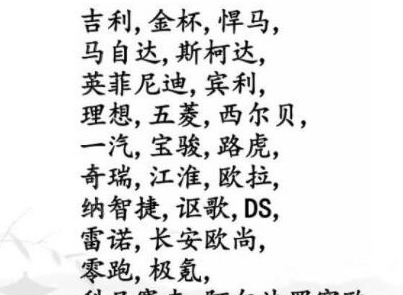 吉利,金杯,悍马,
马自达,斯柯达,
英菲尼迪,宾利,
理想,五菱,西尔贝,
一汽,宝骏,路虎,
奇瑞,江淮,欧拉,
纳智捷,讴歌,DS,
雷诺,长安欧尚,
零跑,极氪,